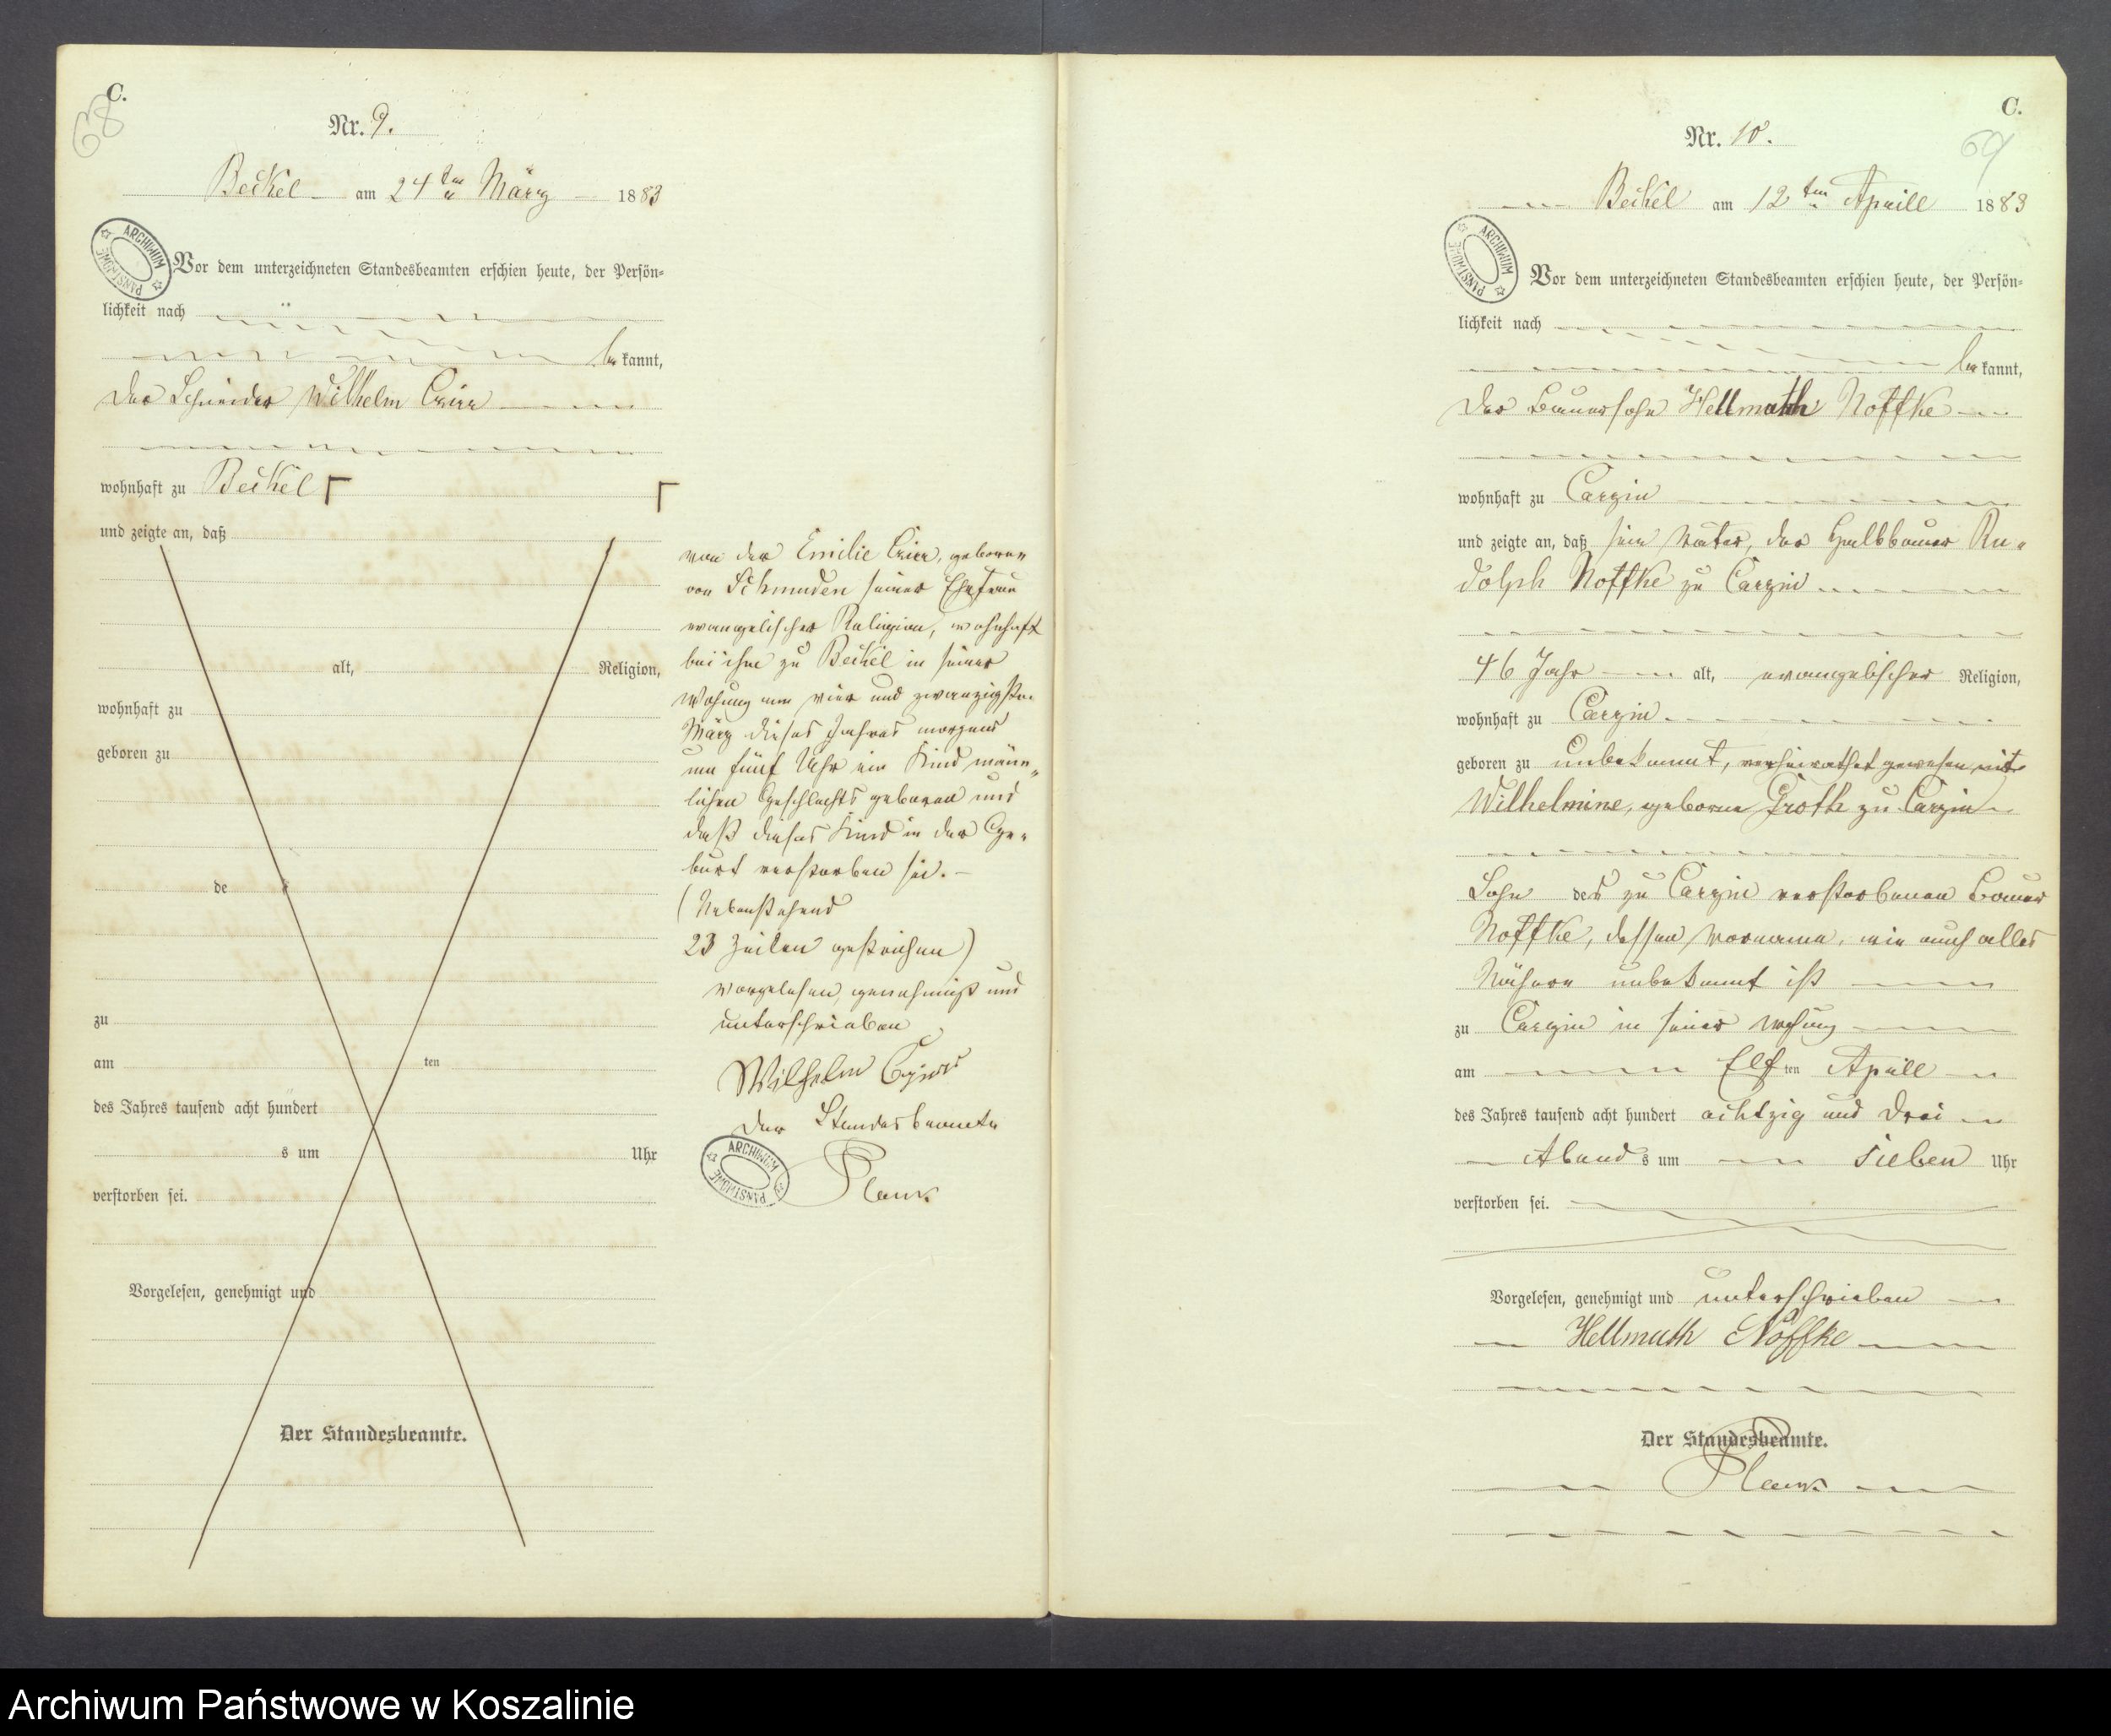 C.
68
Nr. 9.
Beckel am 24ten März 1883
ARCHIWUM PAŃSTWOWE
Vor dem unterzeichneten Standesbeamten erschien heute, der Persön-
lichkeit nach
be kannt,
der Schneider Wilhelm
wohnhaft zu Beckel
und zeigte an, daß
alt, Religion,
wohnhaft zu
geboren zu
de
zu
am ten
des Jahres tausend acht hundert
s um Uhr
verstorben sei.
Vorgelesen, genehmigt und
Der Standesbeamte.
von der Emilie geboren
von Schmuden seiner Ehefrau
evangelischer Religion, wohnhaft
bei ihm zu Beckel in seiner
Wohung am vier und zwanzigsten
März dieses Jahres morgens
um fünf Uhr ein Kind männ-
lichen Geschlechts geboren und
daß dieses Kind in der Ge-
burt verstorben sei.
(Nebenstehend
23 Zeilen gestrichen)
Vorgelesen, genehmigt und
unterschrieben
Wilhelm
Der Standesbeamte
ARCHIWUM PAŃSTWOWE
Plank
C.
69
Nr. 10.
Beckel am 12ten Aprill 1883
ARCHIWUM PAŃSTWOWE
Vor dem unterzeichneten Standesbeamten erschien heute, der Persön-
lichkeit nach
be kannt,
der Bauersohn Hellmuth Noffke
wohnhaft zu Carzin
und zeigte an, daß sein Vater, der Halbbauer Ru-
dolph Noffke zu Carzin
46 Jahr alt, evangelischer Religion,
wohnhaft zu Carzin
geboren zu unbekannt, verheirathet gewesen mit
Wilhelmine, geborne Groth zu Carzin
Sohn des zu Carzin verstorbenen Bauer
Noffke, dessen Vorname, wie auch alles
Nähere unbekannt ist
zu Carzin in seiner Wohung
am Elf ten Aprill
des Jahres tausend acht hundert achtzig und drei
Abend s um sieben Uhr
verstorben sei.
Vorgelesen, genehmigt und unterschrieben
Hellmuth Noffke
Der Standesbeamte.
Plank
Archiwum Państwowe w Koszalinie